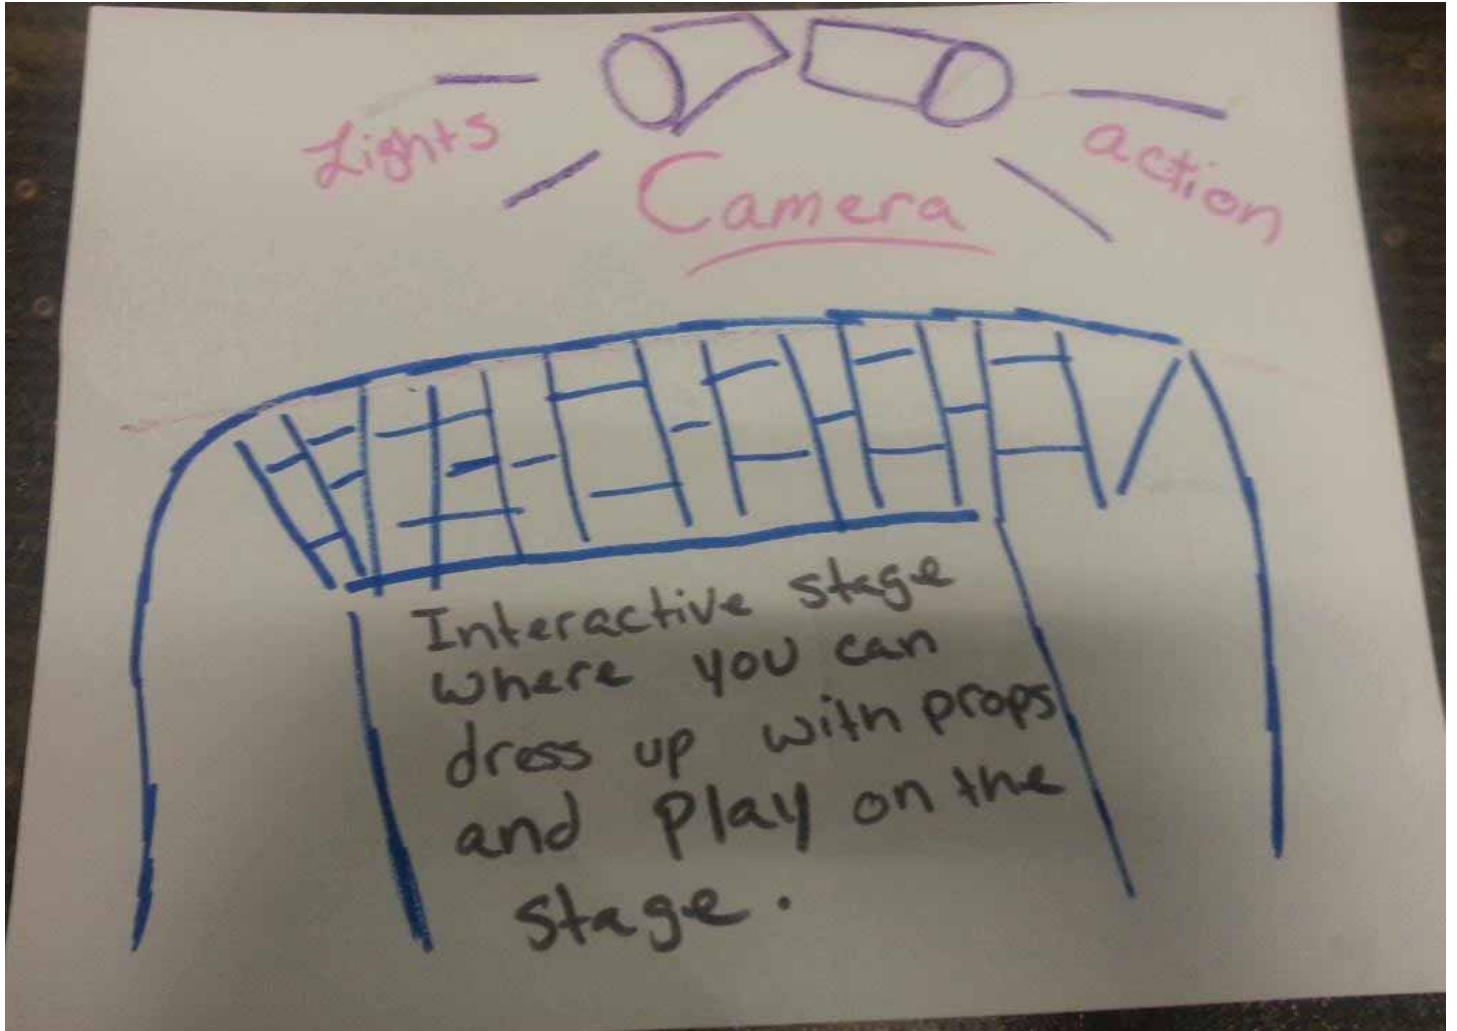 Lights
Camera
action
Interactive stage
where you can
dress up with props
and play on the
stage.